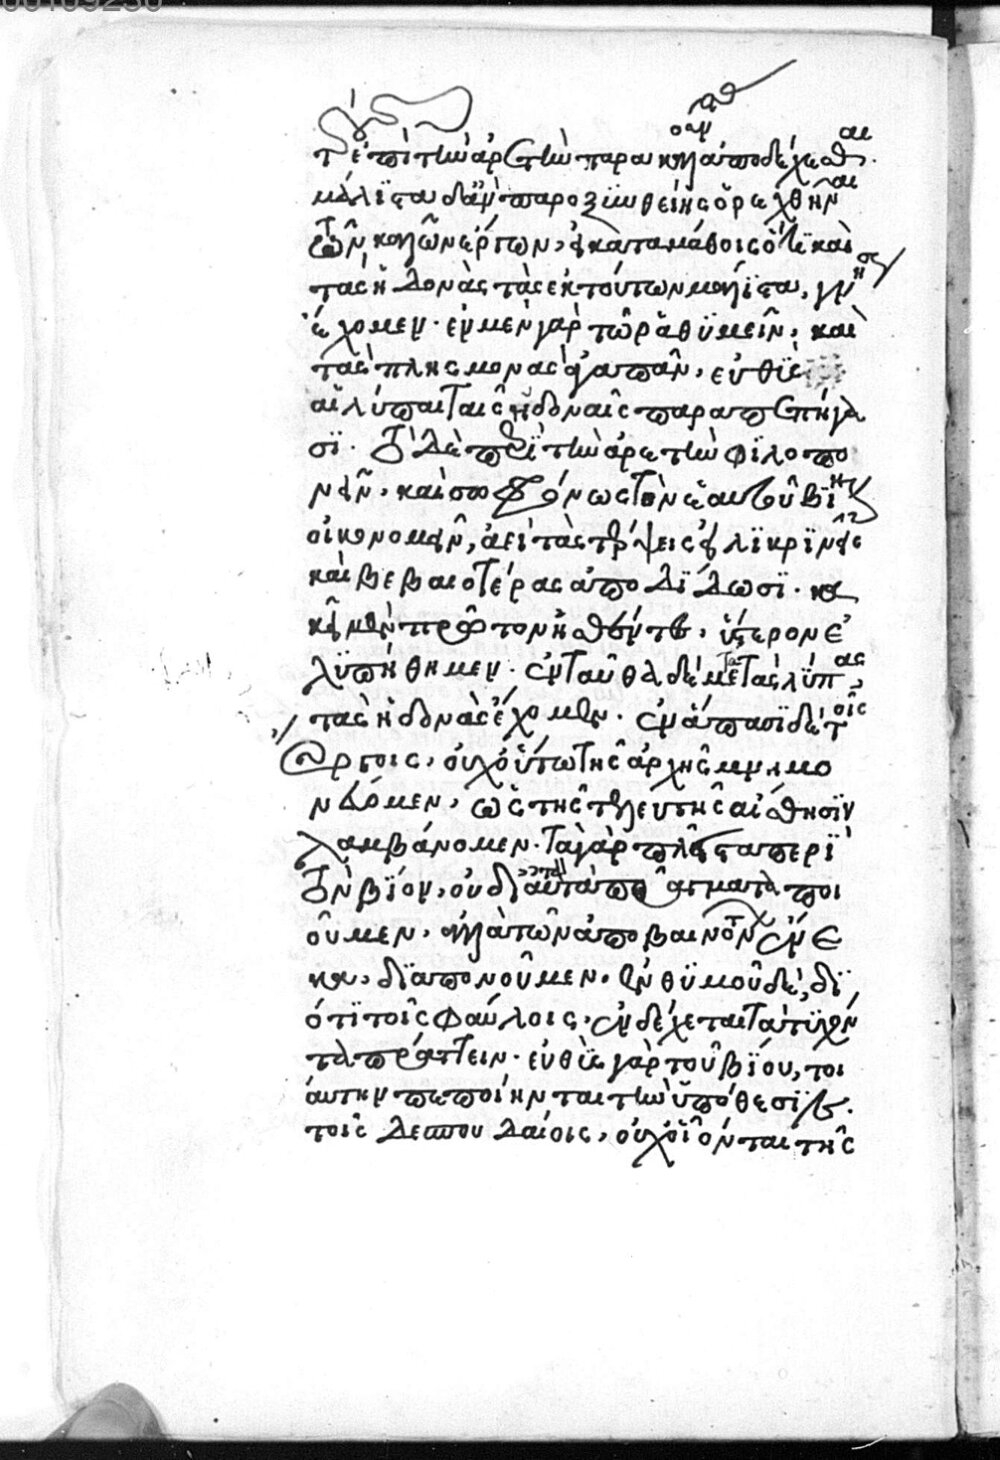 τ' ἐπὶ τὴν ἀρετὴν παρακαλοῦντας ἀποδέχεσθαι.
μάλιστα δ' ἂν παροξυνθείης ὀρεχθῆναι
τῶν καλῶν ἔργων, εἰ καταμάθοις ὅτι καὶ
τὰς ἡδονὰς τὰς ἐκ τούτων μάλιστα, γνησίως
ἔχομεν· ἐν μὲν γὰρ τῷ ῥαθυμεῖν, καὶ
τὰς πλησμονὰς ἀγαπᾶν, εὐθὺς
αἱ λύπαι ταῖς ἡδοναῖς παραπεπήγα
σι· τὸ δὲ περὶ τὴν ἀρετὴν φιλοπο
νεῖν, καὶ σωφρόνως τὸν ἑαυτοῦ βίον
οἰκονομεῖν, ἀεὶ τὰς τέρψεις εἰλικρινεῖς
καὶ βεβαιοτέρας ἀποδίδωσι· κα
κεῖ μὲν πρῶτον ἡσθέντες, ὕστερον ἐ
λυπήθημεν· ἐνταῦθα δὲ μετὰ τὰς λύπας,
τὰς ἡδονὰς ἔχομεν· ἐν ἅπασι δὲ τοῖς
ἔργοις, οὐχ οὕτω τῆς ἀρχῆς μνημο
νεύομεν, ὡς τῆς τελευτῆς αἴσθησιν
λαμβάνομεν· τὰ γὰρ πλεῖστα περὶ
τὸν βίον, οὐ δι' αὐτὰ τὰ πράγματα ποι
οῦμεν, ἀλλὰ τῶν ἀποβαινόντων ἕνε
κεν, διαπονοῦμεν· ἐνθυμοῦ δέ, δι
ότι τοῖς φαύλοις, ἐνδέχεται τὰ τυχόν
τα πράττειν· εὐθὺς γὰρ τοῦ βίου, τοι
αύτην πεποίηνται τὴν ὑπόθεσιν·
τοῖς δὲ σπουδαίοις, οὐχ οἷόν τε τῆς